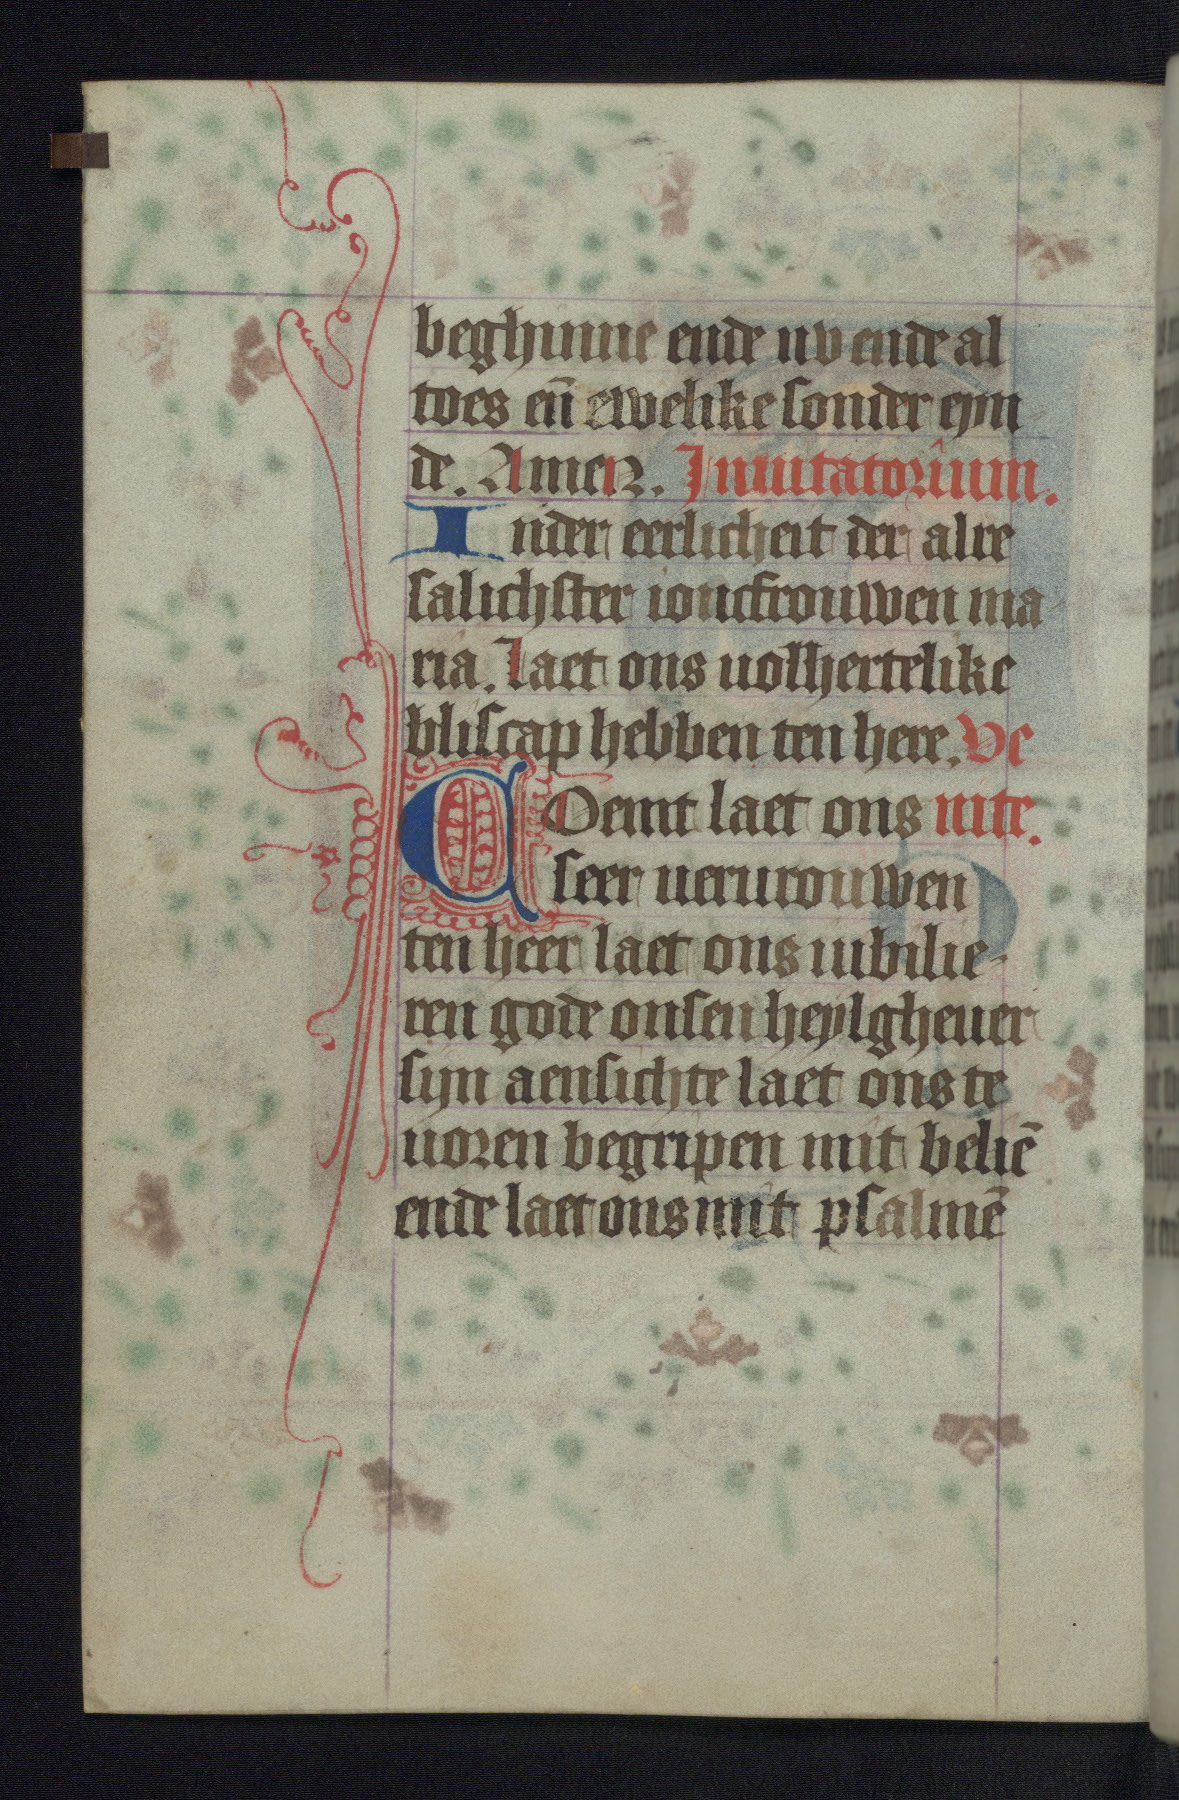 beghinne ende nv ende al
toes eñ ewelike sonder eyn
de. Amen. Inuitatorium.
In der eerlicheit der alre
salichster ioncfrouwen ma
ria. laet ons uolhertelike
bliscap hebben ten here. Ve
Coemt laet ons nite.
seer uerurouwen
ten heer laet ons iubilie-
ren gode onsen heylgheuer
sijn aensichte laet ons te
uoren begripen mit beliē
ende laet ons mit psalmē